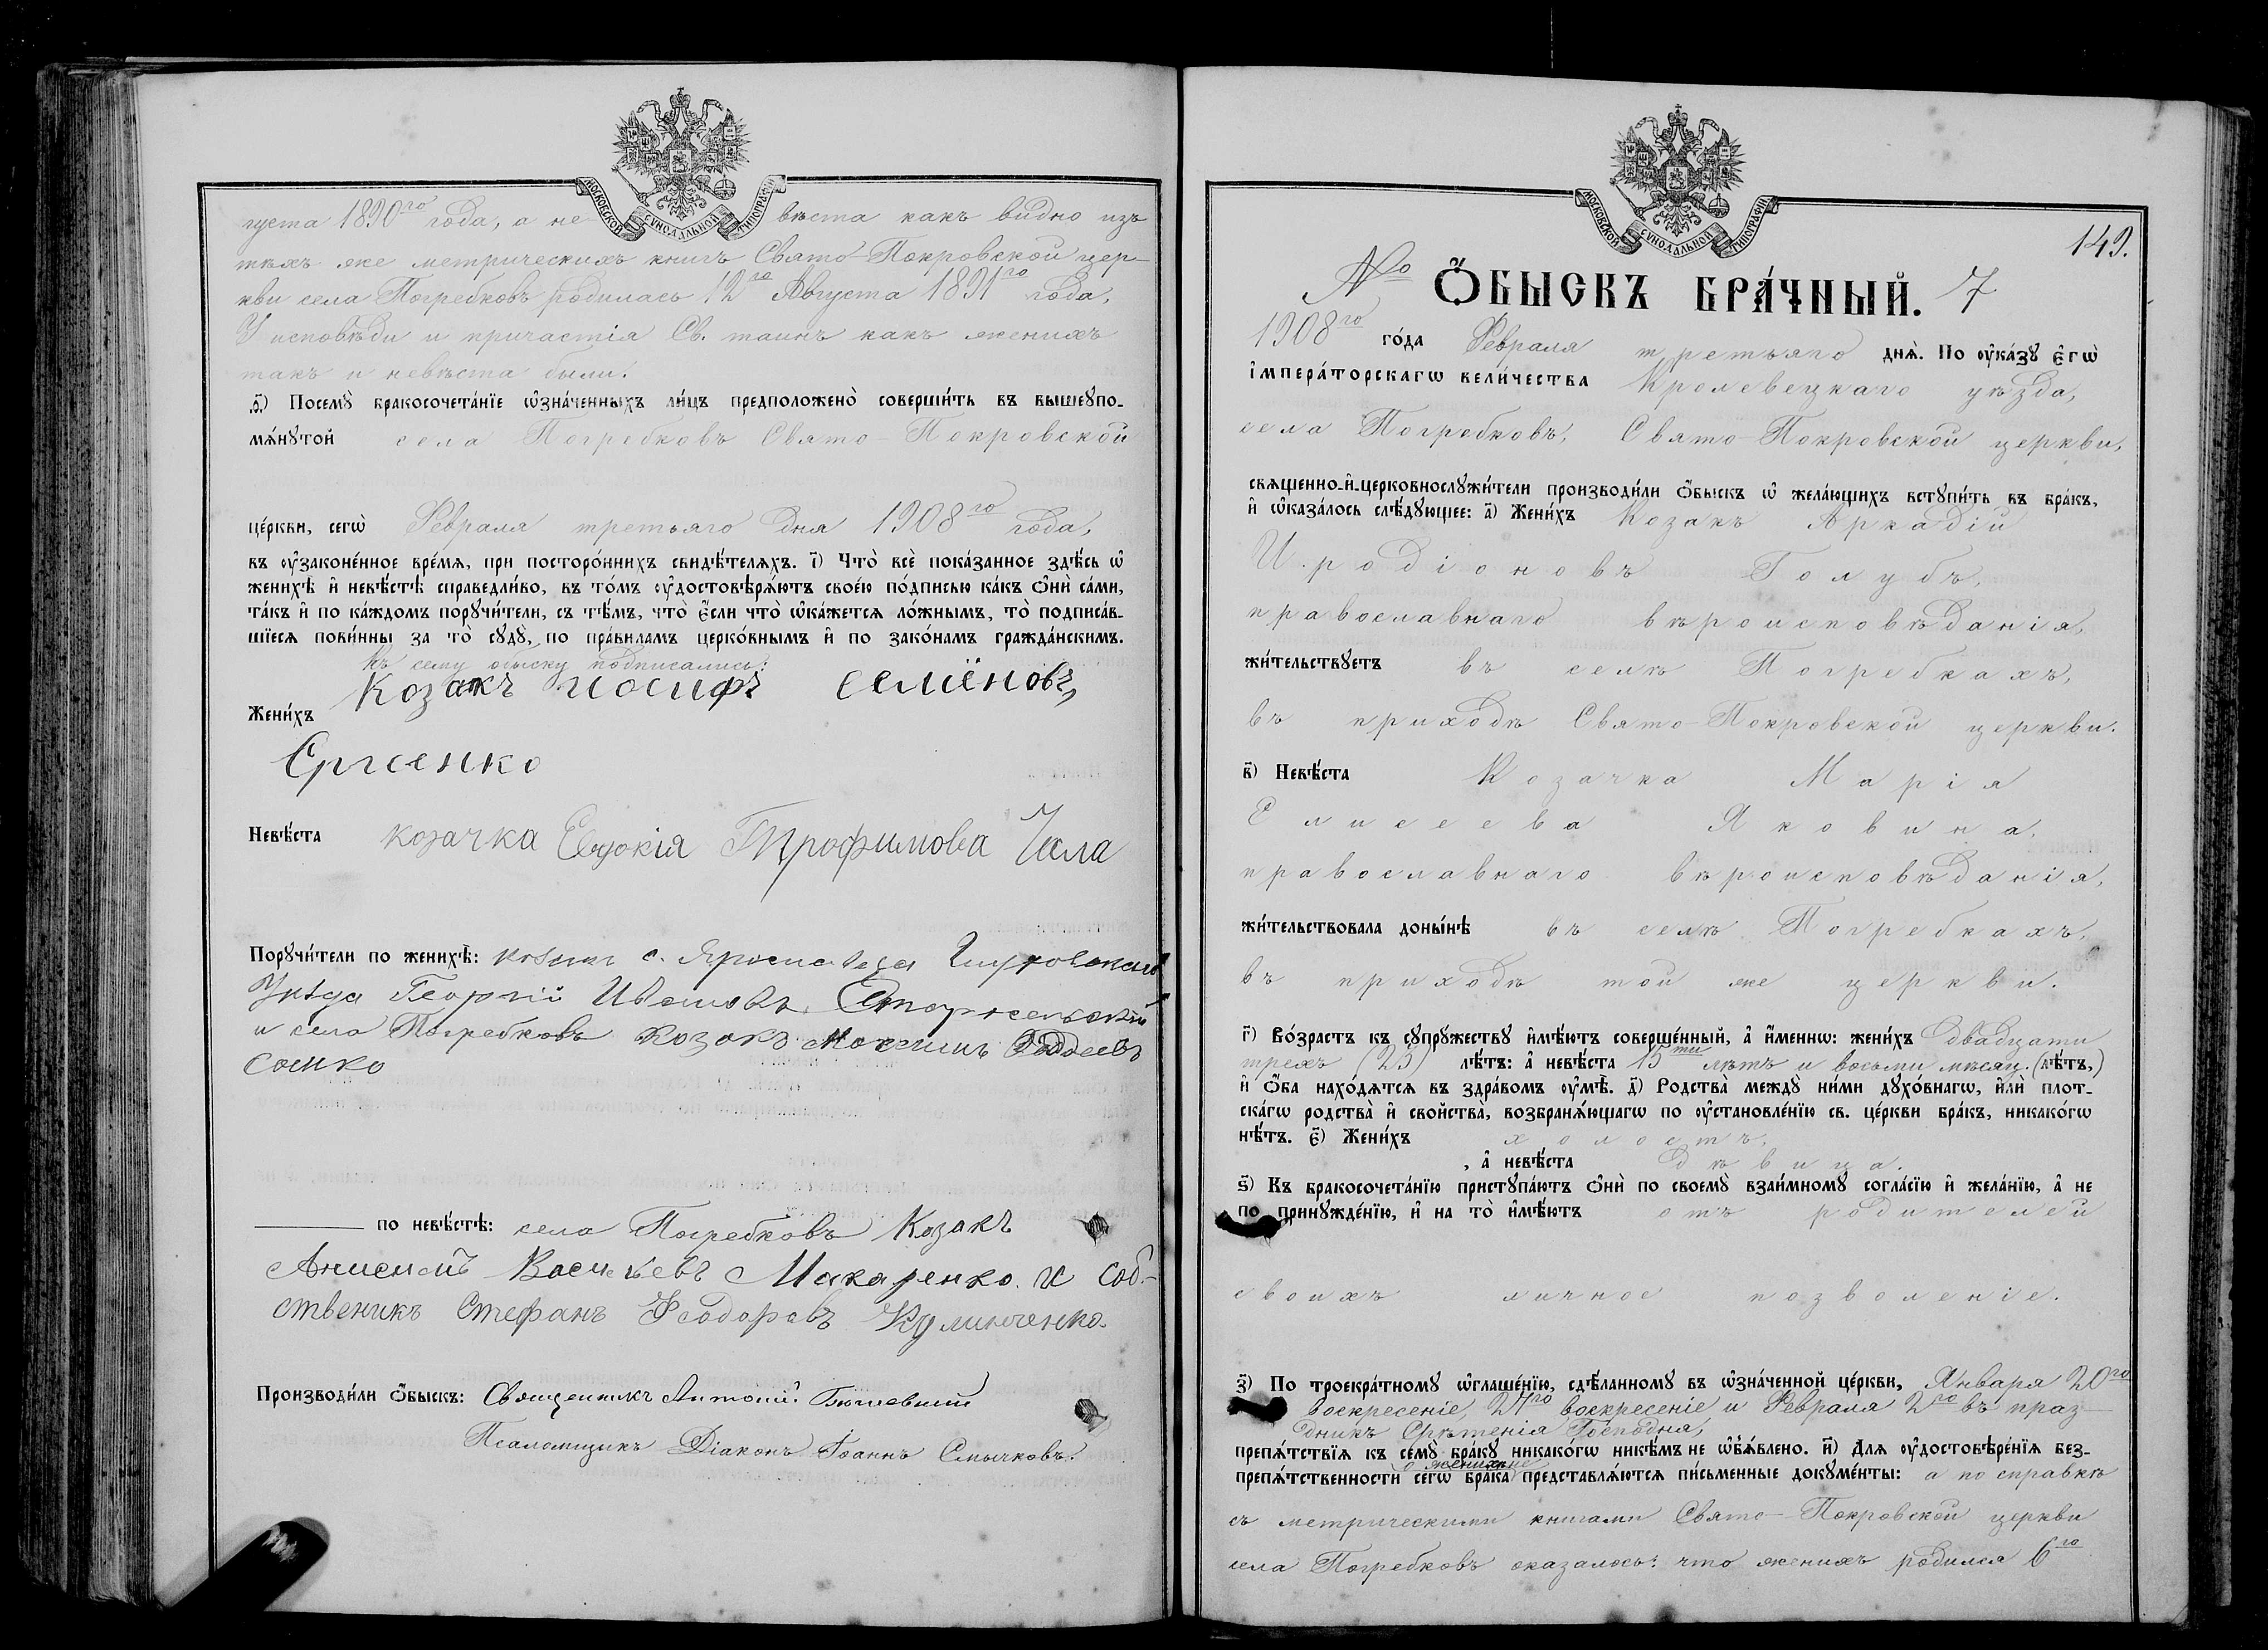 МОСКОВСКОЙ СѴНОДАЛЬНОЙ ТИПОГРАФІИ
густа 1890го года, а невѣста какъ видно изъ
тѣхъ же метрическихъ книгъ Свято-Покровской цер-
кви села Погребковъ родилась 12го Августа 1891го года,
У исповѣди и причастія Св. таинъ какъ женихъ
такъ и невѣста были.
Посемꙋ бракосочета́нїе ѡ҆зна́ченныхъ ли́цъ предположено̀ соверши́ть въ вышеꙋпо-
мѧ́нꙋтой села Погребковъ Свято-Покровской
це́ркви, сегѡ̀ Февраля третьяго дня 1908го года,
въ ᲂу҆законе́нное вре́мѧ, при посторо́ннихъ свидѣ́телѧхъ. і҃) Что̀ всѐ пока́занное здѣ́сь ѡ҆
женихѣ̀ и҆ невѣ́стѣ справедли́во, въ то́мъ ᲂу҆достовѣрѧ́ютъ свое́ю по́дписью ка́къ ѻ҆нѝ са́ми,
та́къ и҆ по ка́ждомъ порꙋчи́тели, съ тѣ́мъ, что̀ є҆́сли что̀ ѡ҆ка́жетсѧ ло́жнымъ, то̀ подписа́в-
шїесѧ пови́нны за то̀ сꙋдꙋ̀, по пра́виламъ церко́внымъ и҆ по зако́намъ гражда́нскимъ.
Къ сему обыску подписались:
Жени́хъ Козакъ Иосифъ Семёновъ,
Ергиенко
Невѣ́ста козачка Евдокія Трофимова Чала
Порꙋчи́тели по женихѣ̀: козакъ с. Ярославца Глуховскаго
Уѣзда Георгій Ивановъ
и села Погребковъ Козакъ Максимъ Фаддеевъ
Сомко
по невѣ́стѣ: села Погребковъ Козакъ
Анисимъ Васильевъ Макаренко. и соб-
ственикъ Стефанъ Феодоровъ
Производи́ли ѻ҆́быскъ: Священникъ Антоній
Псаломщикъ Діаконъ Іоаннъ Смычковъ.
МОСКОВСКОЙ СѴНОДАЛЬНОЙ ТИПОГРАФІИ
149.
№ Ѻ҆́БЫСКЪ БРА́ЧНЫЙ. 7
1908го го́да Февраля третьяго днѧ̀. По ᲂу҆ка́зꙋ є҆гѡ̀
і҆мпера́торскагѡ вели́чества Кролевецкаго уѣзда,
села Погребковъ, Свято-Покровской церкви,
свѧще́нно-и҆-церковнослꙋжи́тели производи́ли ѻ҆́быскъ ѡ҆ жела́ющихъ встꙋпи́ть въ бра́къ,
и҆ ѡ҆каза́лось слѣ́дꙋющее: а҃) Жени́хъ Козакъ Аркадій
Иродіоновъ Голубъ,
православнаго вѣроисповѣданія,
жи́тельствꙋетъ въ селѣ Погребкахъ,
въ приходѣ Свято-Покровской церкви.
в҃) Невѣ́ста Козачка Марія
Елисеева Яковина,
православнаго вѣроисповѣданія,
жи́тельствовала доны́нѣ въ селѣ Погребкахъ,
въ приходѣ той же церкви.
г҃) Во́зрастъ къ сꙋпрꙋ́жествꙋ и҆мѣ́ютъ соверше́нный, а҆ и҆́меннѡ: жени́хъ двадцати
трехъ (23) лѣ́тъ: а҆ невѣ́ста 15ти лѣтъ и восьми мѣсяц. (лѣ́тъ,)
и҆ ѻ҆́ба нахо́дѧтсѧ въ здра́вомъ ᲂу҆мѣ̀. д҃) Родства̀ междꙋ ни́ми дꙋхо́внагѡ, и҆лѝ плот-
ска́гѡ родства̀ и҆ свойства̀, возбранѧ́ющагѡ по ᲂу҆становле́нїю св. це́ркви бра́къ, никако́гѡ
нѣ́тъ. є҃) Жени́хъ холостъ,
, а҆ невѣ́ста дѣвица.
ѕ҃) Къ бракосочета́нїю пристꙋпа́ютъ ѻ҆нѝ по своемꙋ̀ взаи́мномꙋ согла́сїю и҆ жела́нїю, а҆ не
по принꙋжде́нїю, и҆ на то̀ и҆мѣ́ютъ отъ родителей
своихъ личное позволеніе.
з҃) По троекра́тномꙋ ѡ҆глаше́нїю, сдѣ́ланномꙋ въ ѡ҆зна́ченной це́ркви, Января 20го
воскресеніе, 27го воскресеніе и Февраля 2го въ праз-
дникъ Срѣтенія Господня,
препѧ́тствїѧ къ семꙋ̀ бра́кꙋ никако́гѡ никѣ́мъ не ѡ҆б̾ѧ́влено. и҃) Длѧ ᲂу҆достовѣре́нїѧ без-
препѧ́тственности сегѡ̀ бра́ка представлѧ́ютсѧ пи́сьменные докꙋме́нты: а по справкѣ
съ метрическими книгами Свято-Покровской церкви
села Погребковъ оказалось: что женихъ родился 6го